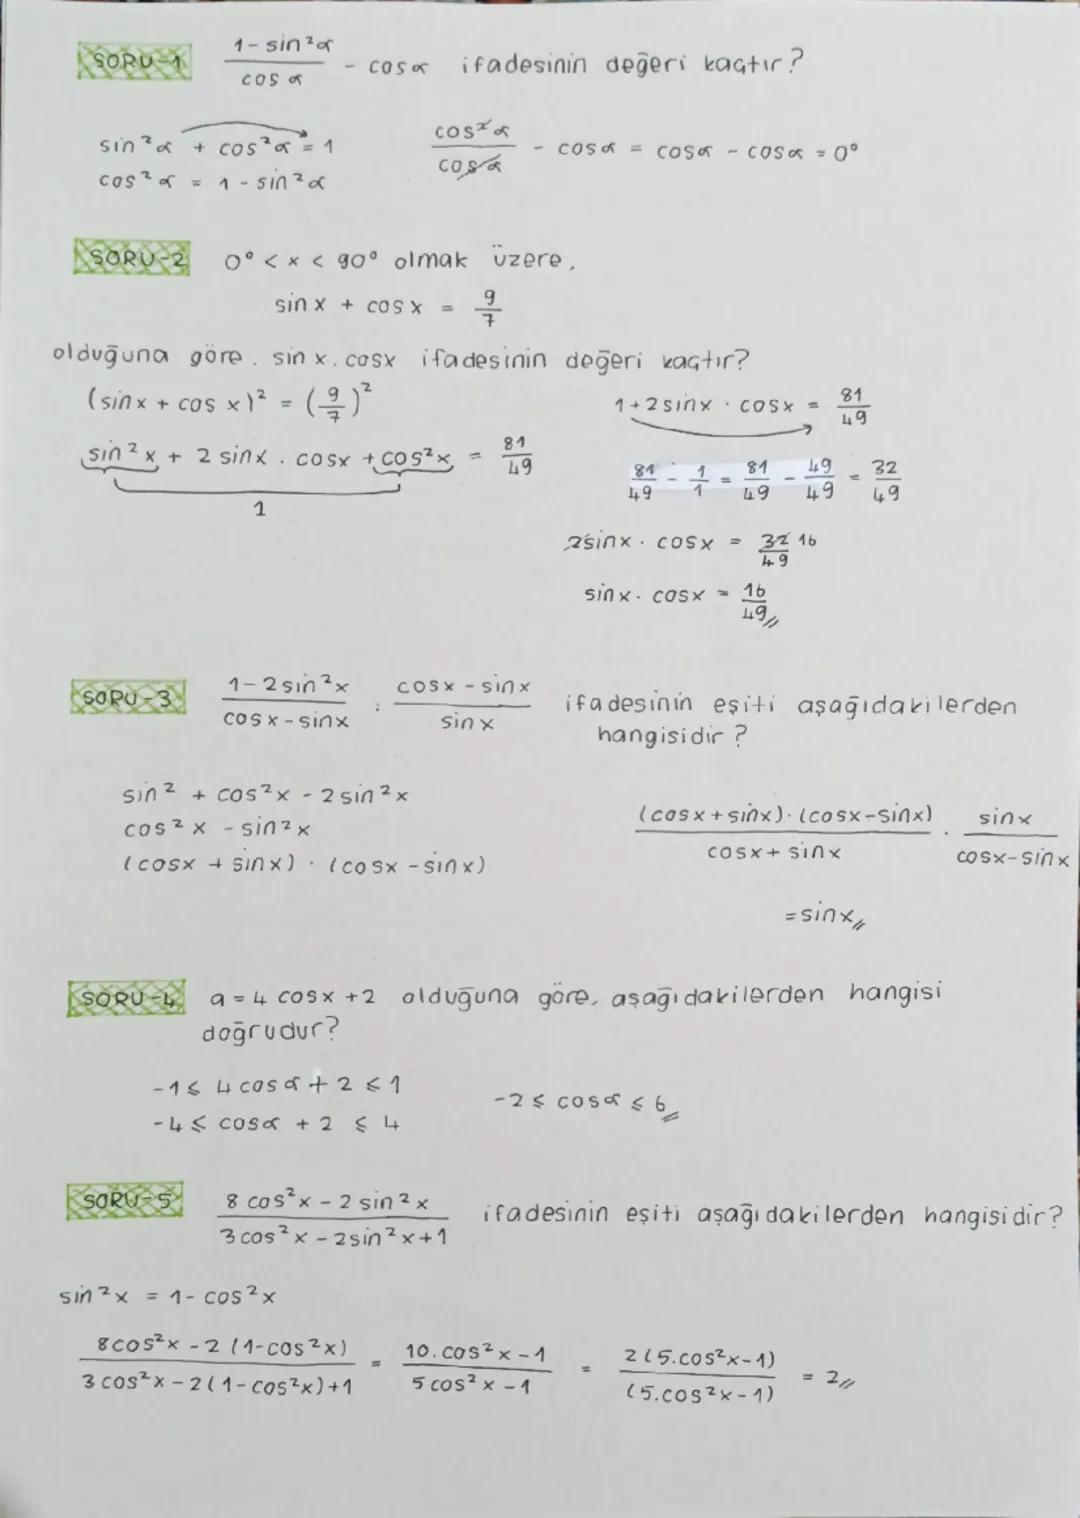 SORU-1 (1 - sin²α)/(cos α) - cosα ifadesinin değeri kaçtır?
sin²α + cos²α = 1
cos²α = 1 - sin²α
(cos²α)/(cosα) - cosα = cosα - cosα = 0°
SORU-2 0° < x < 90° olmak üzere,
sin x + cos x = 9/7
olduğuna göre. sin x. cosx ifadesinin değeri kaçtır?
(sinx + cos x)² = (9/7)²
sin²x + 2 sinx . cosx + cos²x = 81/49
1
1+2sinx · cosx = 81/49
81/49 - 1/1 = 81/49 - 49/49 = 32/49
2sinx · cosx = 32/49 16
sinx. cosx = 16/49//
SORU-3 (1-2sin²x)/(cosx-sinx) : (cosx-sinx)/(sin x) ifadesinin eşiti aşağıdakilerden
hangisidir?
sin² + cos²x - 2sin²x
cos²x - sin²x
(cosx + sinx) · (cosx - sinx)
((cosx+sinx)·(cosx-sinx))/(cosx+sinx) · (sinx)/(cosx-sinx)
=sinx//
SORU-4 a = 4 cosx +2 olduğuna göre, aşağıdakilerden hangisi
doğrudur?
-1≤ 4cosα + 2 ≤ 1
-4≤ cosα + 2 ≤ 4
-2 ≤ cosα ≤ 6//
SORU-5 (8 cos²x - 2 sin²x)/(3cos²x - 2sin²x+1) ifadesinin eşiti aşağıdakilerden hangisidir?
sin²x = 1- cos²x
(8cos²x - 2 (1-cos²x))/(3cos²x - 2(1-cos²x)+1) = (10.cos²x-1)/(5cos²x-1) = (2(5.cos²x-1))/((5.cos²x-1)) = 2//